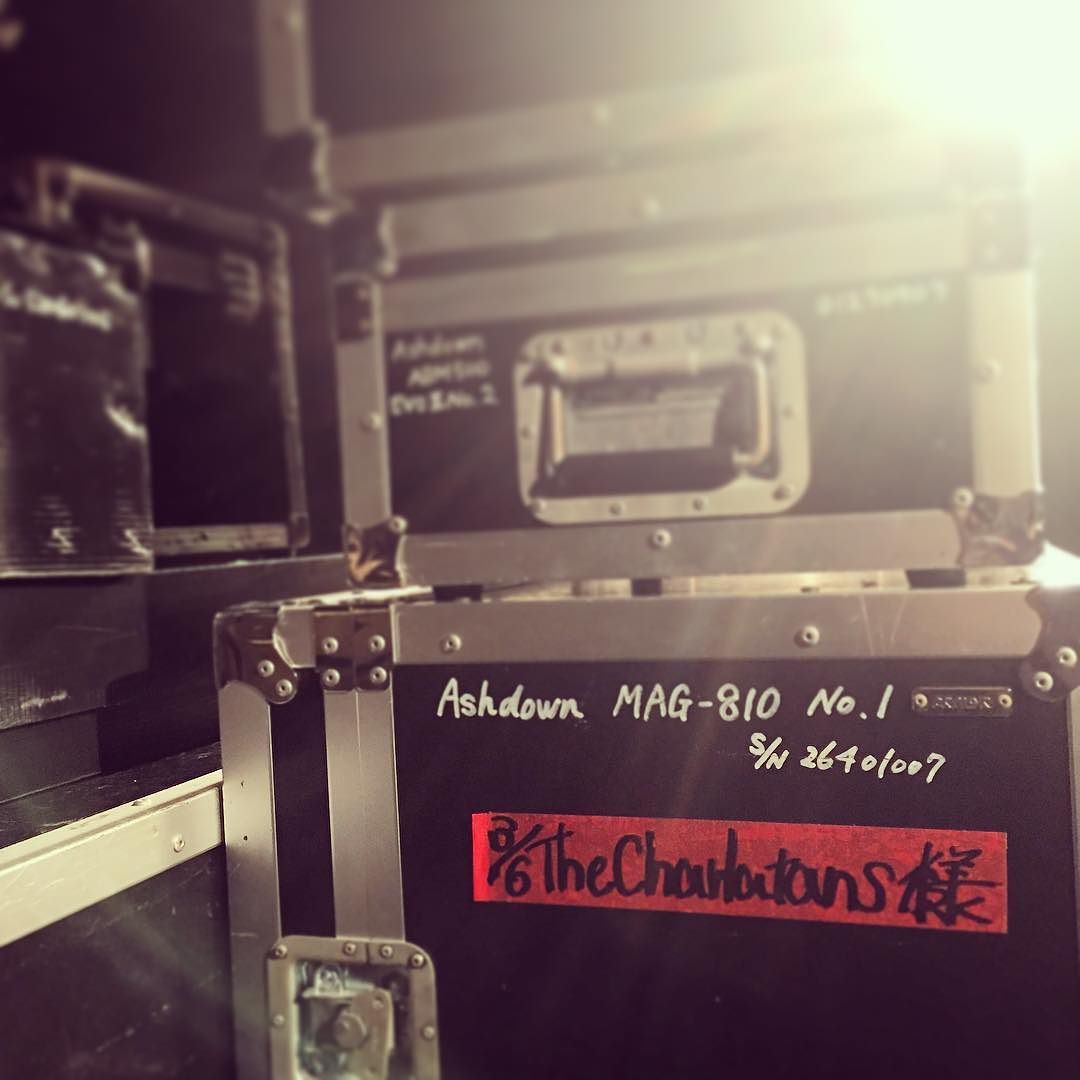 Ashdown
ABM500
EVO II No.2
Ashdown MAG-810 No.1
S/N 26401007
8/6 The Charlatans 様